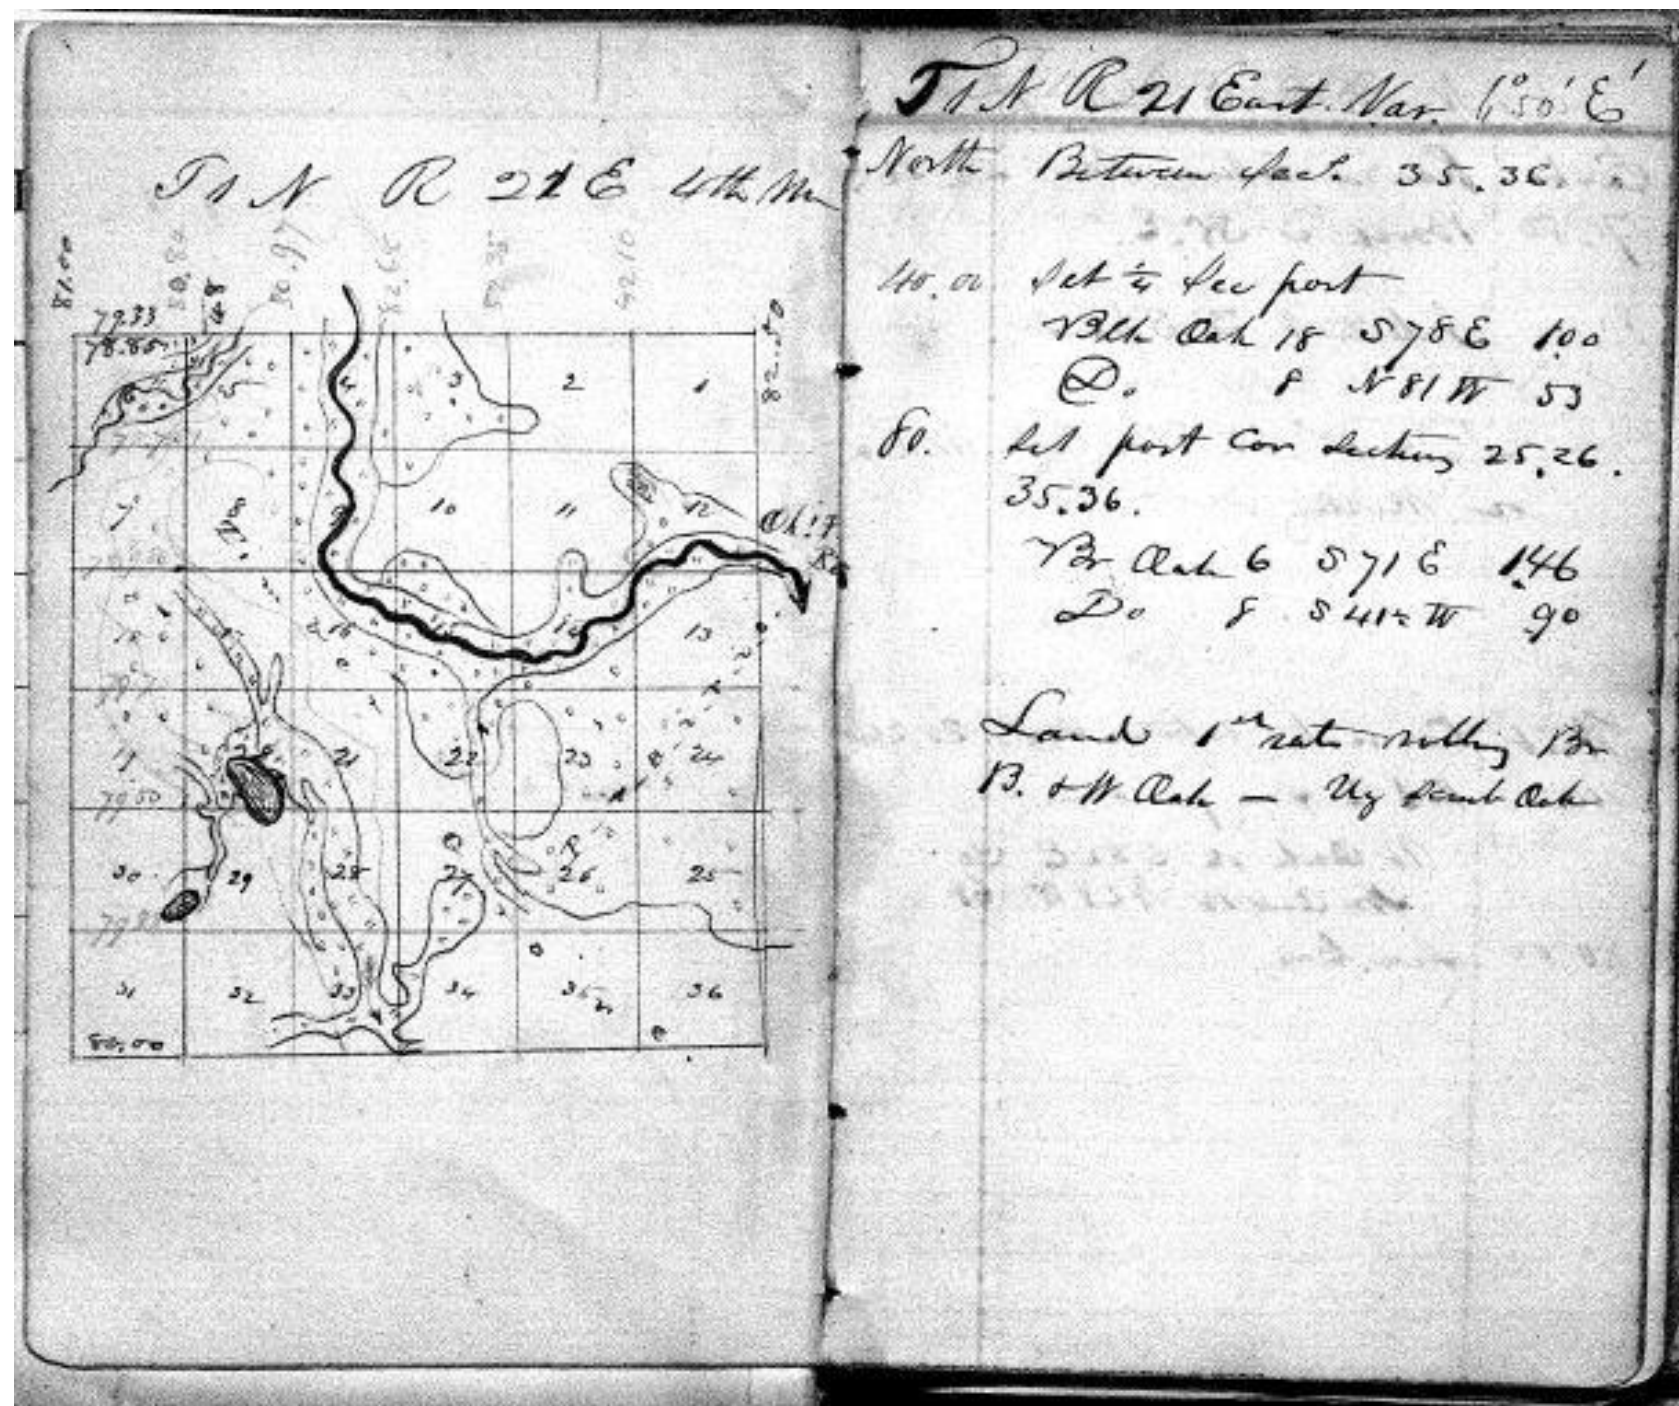 T 1 N R 21 E 4th M
81.00
80.97
82.65
82.10
82.50
79.33
78.85
48
6 5 4 3 2 1
7 8 9 10 11 12
Ohi
R
18 17 16 15 14 13
19 20 21 22 23 24
79.50
30 29 28 27 26 25
31 32 33 34 35 36
80.00
T 1 N R 21 East. Var. 6° 50' E
North Between Sec. 35.36.
40.00 Set ¼ Sec post
Blk Oak 18 S 78 E 100
Do. 8 N 81 W 53
80. Set post Cor Sections 25.26.
35.36.
Br Oak 6 S 71 E 146
Do 8 S 41½ W 90
Land 1st rate rolling Br
B. & W Oak — Ug Scrub Oak